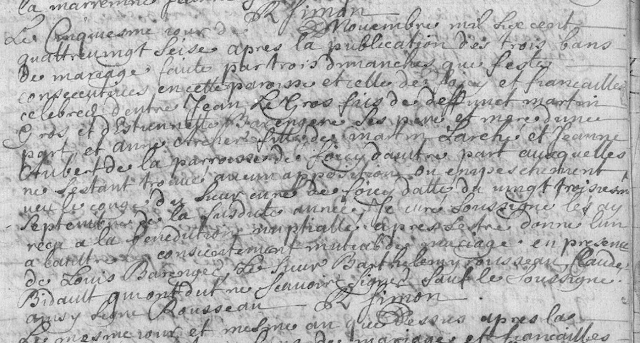 la marreinne
R Simon
Le Cinquesme jour de Novembre mil six cent
quattre vingt seise apres la publication des trois bans
de mariage faite par trois dimanches que festes
consecutives en cette paroisse et celle de Soucy et fiancailles
celebrez d'entre Jean Le Gros fils de deffunct martin
Gros et d'Estiennette ses pere et mere d'une
part et Anne Larcher fille de martin Larche et Jeanne
Aubert de la parroisse de Soucy d'autre part ausquelles
ne sestant trouve aucun apposition ou empeschement
veu le conge du Sieur curé de Soucy datté du vingt troisesm
Septembre de la susditte année Je curé soussigné les ay
receu a la benediction nuptialle apres sestre donné l'un
a lautre consentement mutuel de mariage en presence
de Louis Barenge Le Sieur Barthelemy rousseau Claude
Bidault qui ont dit ne scavoir signer sauf le soussigné
ainsy signé Rousseau R Simon
Le mesme jour et mesme an que dessus apres las
de mariages et fiancailles